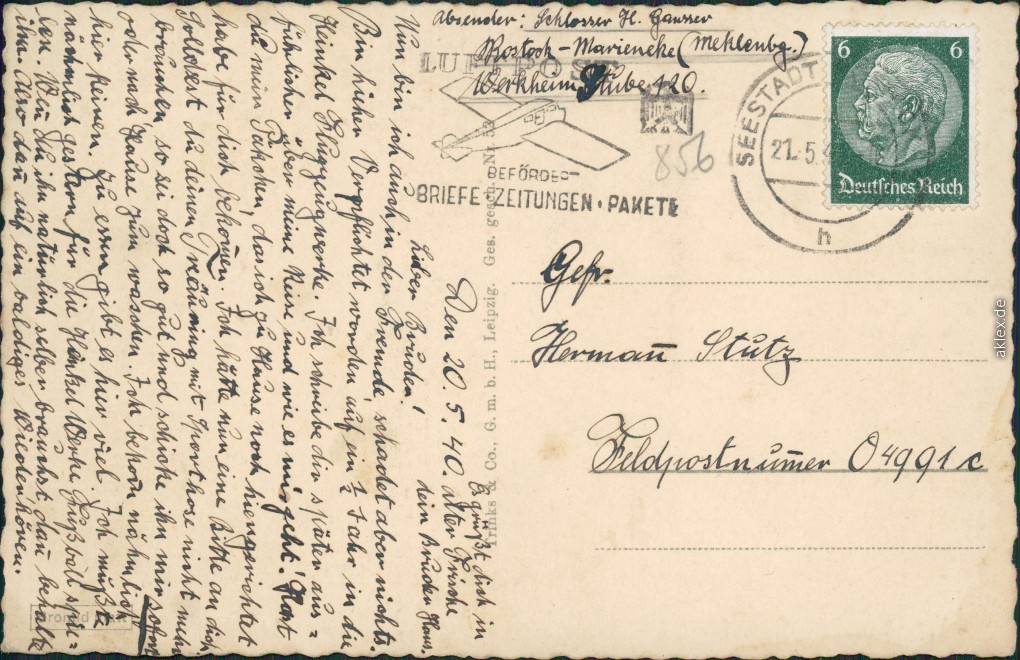 Absender: Schlosser H. Gansser
Rostock-Marieneke (Mehlenbg.)
Werkheim Stube 120.
LUFTPO
BEFÖRDE
BRIEFE ZEITUNGEN • PAKETE
856
SEESTADT
21.5.
h
6 6
Deutsches Reich
Gefr.
Hermann Stutz
Feldpostnummer O 4991 c
Den 20. 5. 40.
Lieber Bruder!
Nun bin ich auch in der Fremde, schadet aber nichts.
Bin hierher Verpflichtet worden auf ein ½ Jahr in die
Heinkel Flugzeugwerke. Ich schreibe dir später aus=
führlicher über meine Reise und wie es mir geht. Hast
du mein Päkchen, das ich zu Hause noch hingerichtet
habe für dich bekommen. Ich hätte nun eine Bitte an dich
Solltest du deinen Träning mit Sporthose nicht mehr
brauchen, so sei doch so gut und schicke ihn mir sofort
oder nach Hause zum waschen. Ich bekom nähmlich
hier keinen. Zu essen gibt es hier viel. Ich mußte
nähmlich gestern für die Heinkel Werke Fußball spie=
len. Wen du ihn natürlich selber brauchst dan behalte
ihn. Also dan auf ein baldiges Wiederhören.
Es grüßt dich in
alter Frische
dein Bruder Hans.
Trinks & Co., G. m. b. H., Leipzig. Ges. gesch. Nr. 52
aklex.de